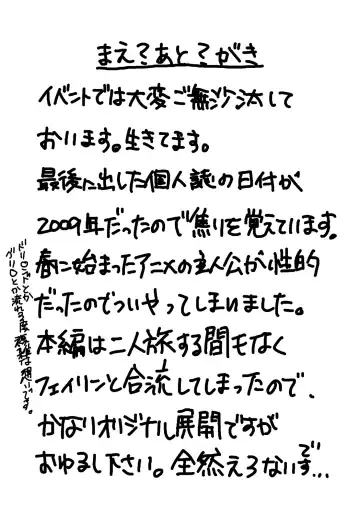 まえ?あと?がき
イベントでは大変ご無沙汰して
おります。生きてます。
最後に出した個人誌の日付が
2009年だったので焦りを覚えています。
春に始まったアニメの主人公が性的
だったのでついやってしまいました。
本編は二人旅する間もなく
フェイリンと合流してしまったので、
かなりオリジナル展開ですが
おゆるし下さい。全然えろないです…
ドリロンドとか
グリロとか流行る度
複雑な想いです。